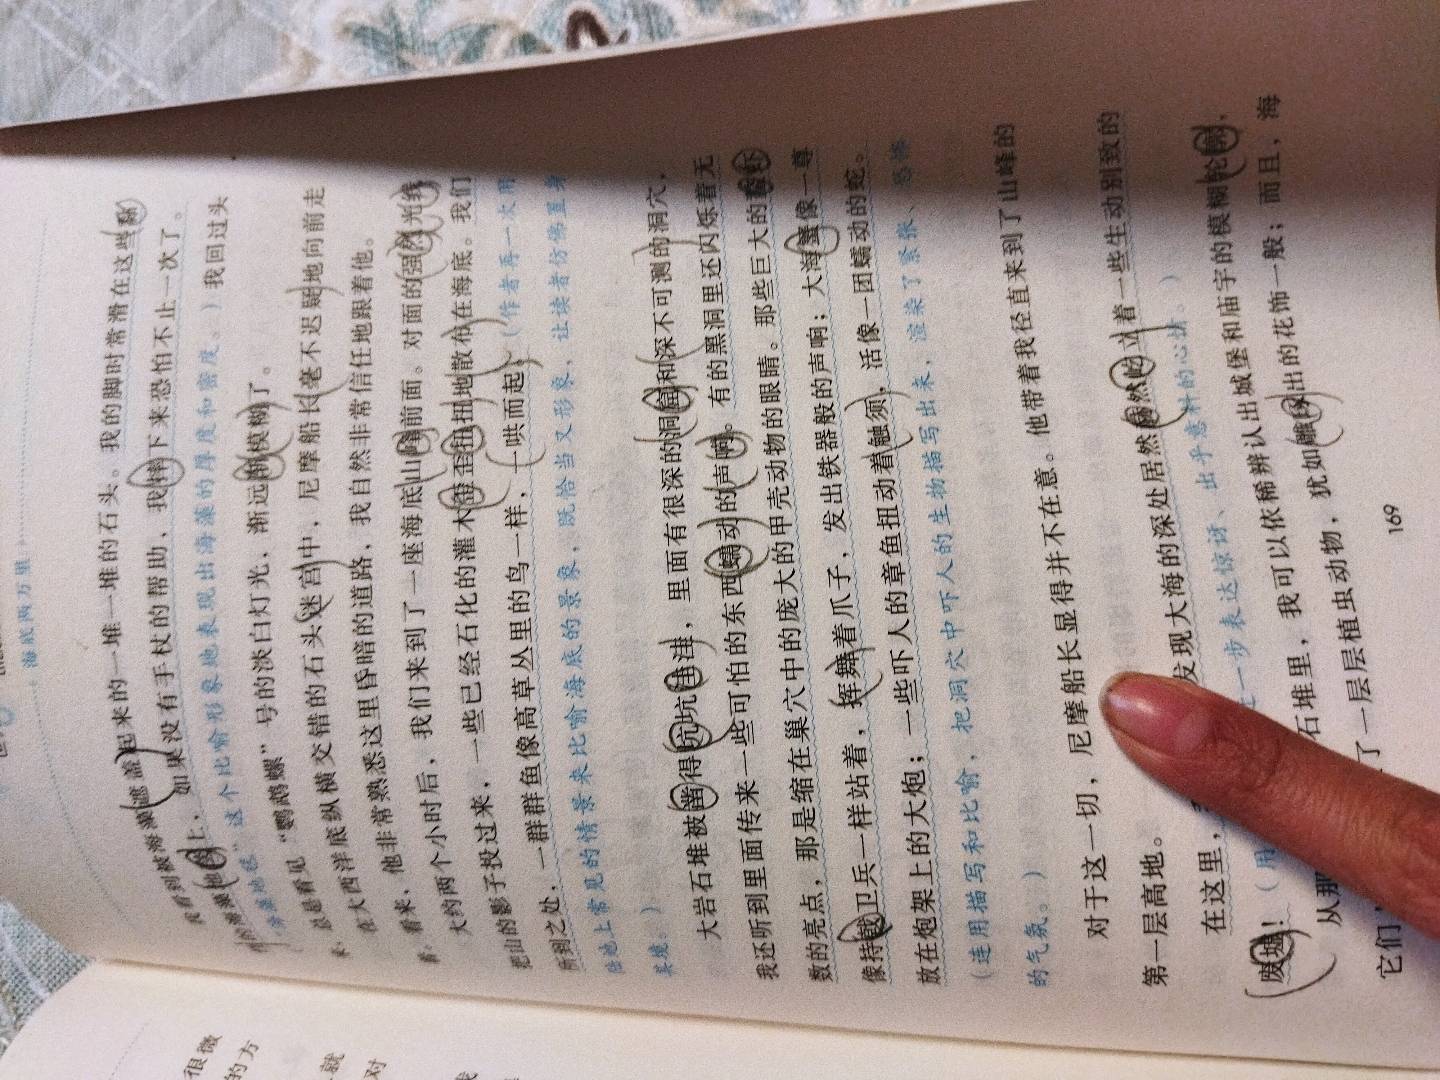 海底两万里
我看到被海藻遮盖起来的一堆一堆的石头。我的脚时常滑在这些黏
的海藻地毯上，如果没有手杖的帮助，我摔下来恐怕不止一次了。
（“海藻地毯”这个比喻形象地表现出海藻的厚度和密度。）我回过头
总是看见“鹦鹉螺”号的淡白灯光，渐远渐模糊了。
在大西洋底纵横交错的石头迷宫中，尼摩船长毫不迟疑地向前走
来。看来，他非常熟悉这里昏暗的道路，我自然非常信任地跟着他。
大约两个小时后，我们来到了一座海底山峰前面。对面的强烈光线
把山的影子投过来，一些已经石化的灌木歪歪扭扭地散布在海底。我们
所到之处，一群群鱼像高草丛里的鸟一样，一哄而起。（作者再一次用
陆地上常见的情景来比喻海底的景象，既恰当又形象，让读者仿佛置身
其境。）
大岩石堆被凿得坑坑洼洼，里面有很深的洞窟和深不可测的洞穴，
我还听到里面传来一些可怕的东西蠕动的声响。有的黑洞里还闪烁着无
数的亮点，那是缩在巢穴中的庞大的甲壳动物的眼睛。那些巨大的螯虾
像持戟卫兵一样站着，挥舞着爪子，发出铁器般的声响；大海蟹像一尊
放在炮架上的大炮；一些吓人的章鱼扭动着触须，活像一团蠕动的蛇。
（连用描写和比喻，把洞穴中吓人的生物描写出来，渲染了紧张、恐怖
的气氛。）
对于这一切，尼摩船长显得并不在意。他带着我径直来到了山峰的
第一层高地。
在这里，发现大海的深处居然赫然屹立着一些生动别致的
废墟！（用一步表达惊讶、出乎意料的心情。）
从那石堆里，我可以依稀辨认出城堡和庙宇的模糊轮廓，
它们了一层层植虫动物，犹如雕琢出的花饰一般；而且，海
169
很微
的方
就
对